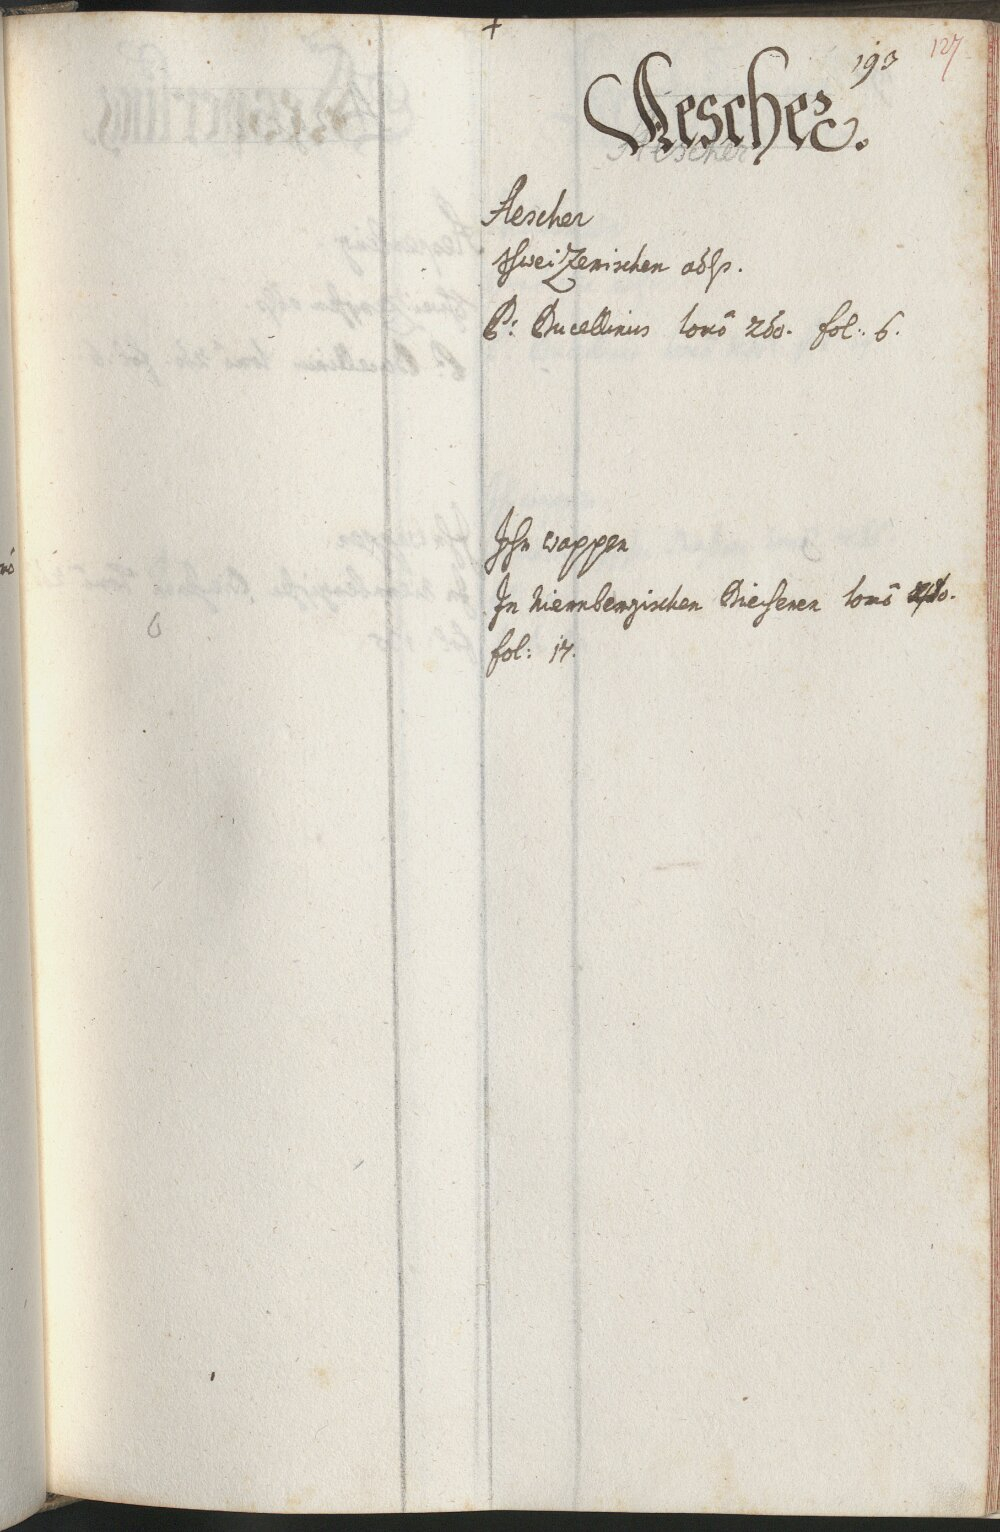 193
127
Aescher.
Aescher
Aescher
schweizerischen adls.
P: Bucellinus tomô 260. fol: 6.
Ihr wappen
In Niernbergischen Biechern tomô
fol: 17.